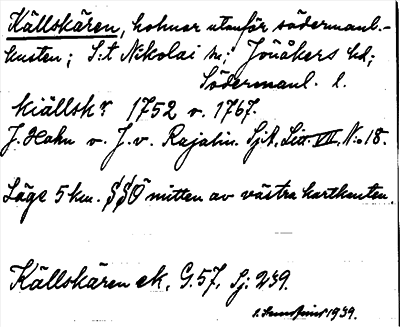 Källskären, holmar utanför södermanl.-
kusten; S:t Nikolai sn; Jönåkers hd;
Södermanl. l.
kiällskr 1752 o. 1767.
J. Hahn o. J. v. Rajalin. Sjk. Litt. VII, No 18.
Läge 5 km. SSO mitten av västra kartkanten.
Källskären ek. G. 57, Sj: 239.
1939.